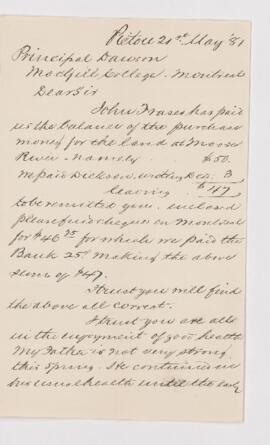 Pictou 21st May '81
Principal Dawson
McGill College - Montreal
Dear Sir
John Fraser has paid
us the balance of the purchase
money for the land at Moose
River - namely $50.
We paid Dickson writing Deed 3
leaving $47
to be remitted you. inclosed
please find cheque on Montreal
for $46.75 for which we paid the
Bank 25c making the above
sum of $47.
I trust you will find
the above all correct.
I trust you are all
in the enjoyment of good health
My Father is not very strong
this Spring. He continued in
his usual health until the